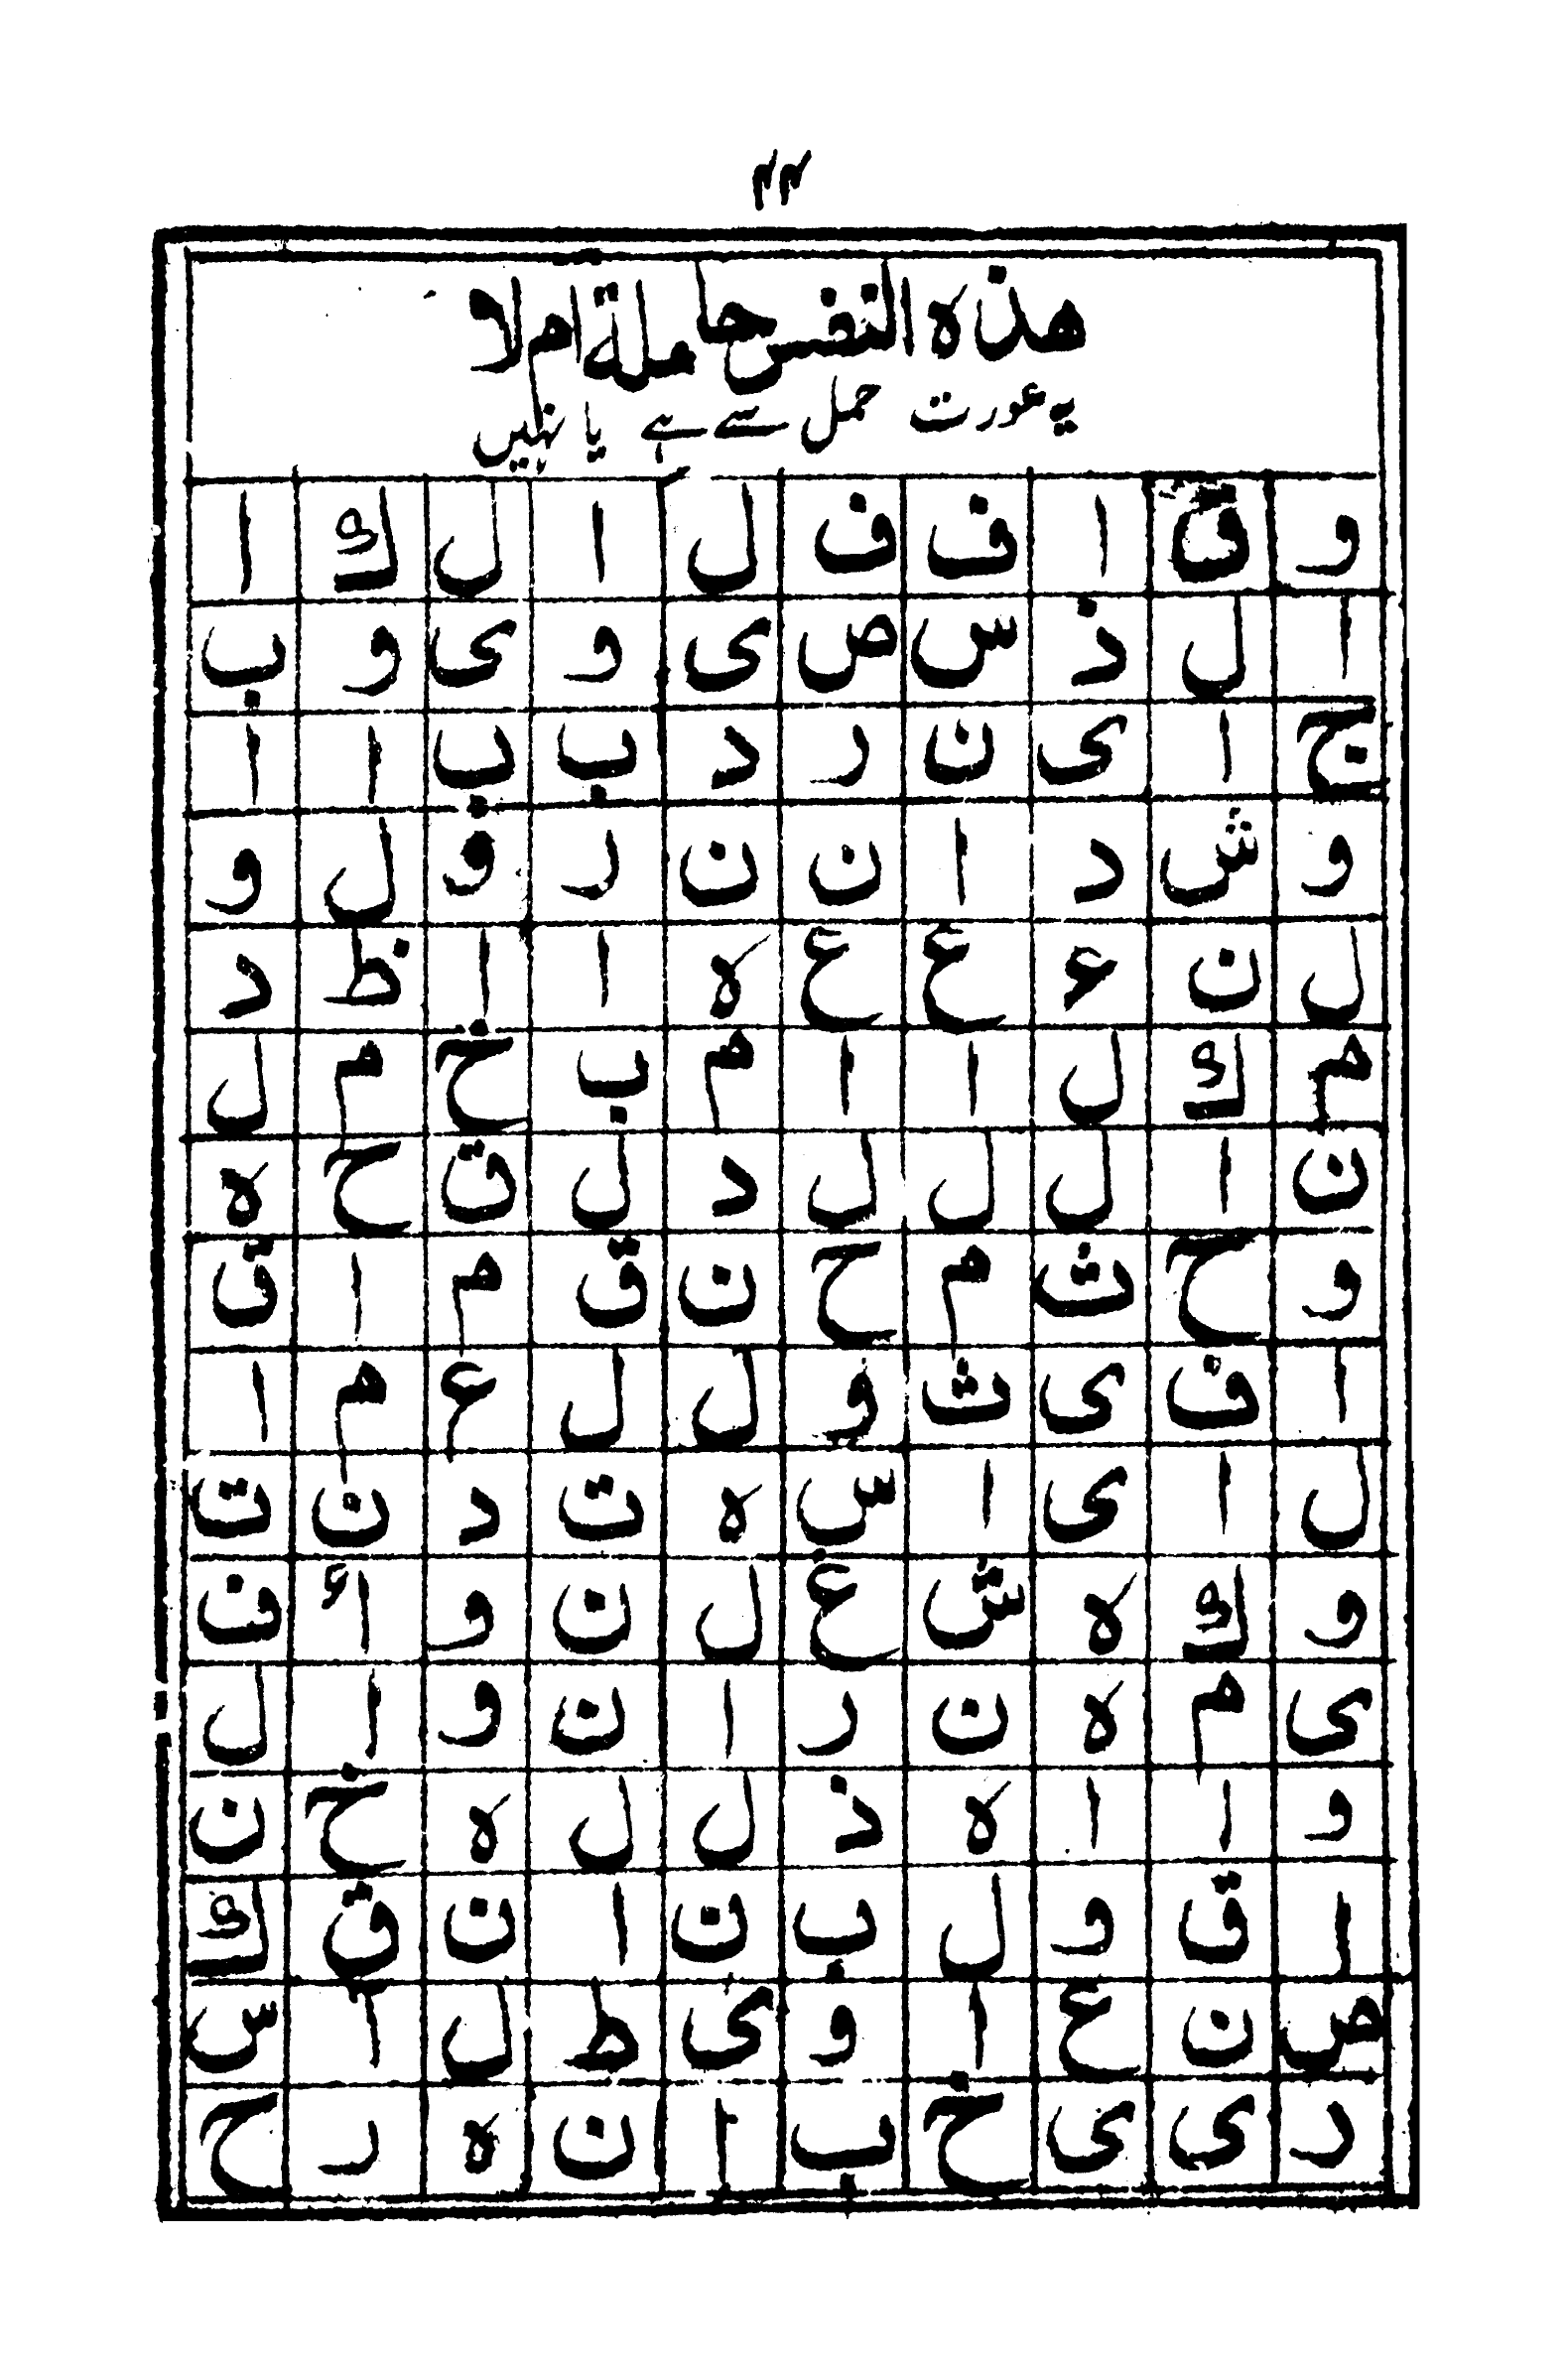 ٤٤
هذه النفس حاملة ام لا
یہ عورت حمل سے ہے یا نہیں
و ق ا ف ف ل ا ل ك ا
ا ل ذ س ص ى و ى و ب
ج ا ى ن ر د ب ب ا ا
و ش د ا ن ن ر و ل و
ل ن ء ع ع ه ا ا ظ د
م ك ل ا ا م ب خ م ل
ن ا ل ل ل د ل ق ح ه
و ح ث م ح ن ق م ا ق
ا ف ى ث و ل ل ع م ا
ل ا ى ا س ه ت د ن ت
و ك ه ش غ ل ن و أ ف
ى م ه ن ر ا ن و ا ل
و ا ا ه ذ ل ل ه خ ن
ا ق و ل ب ن ا ن ق ك
ص ن ع ا و ى ط ل ا س
ر ى ى خ ب ا ن ه ر ح